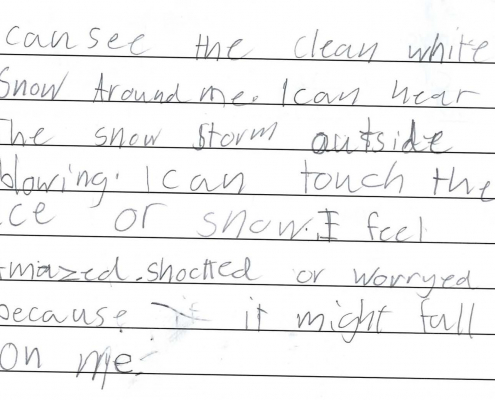 can see the clean white
Snow Around me. I can hear
The snow storm outside
blowing. I can touch the
ce or snow. I feel
mazed.shocked or worryed
because it might fall
on me.